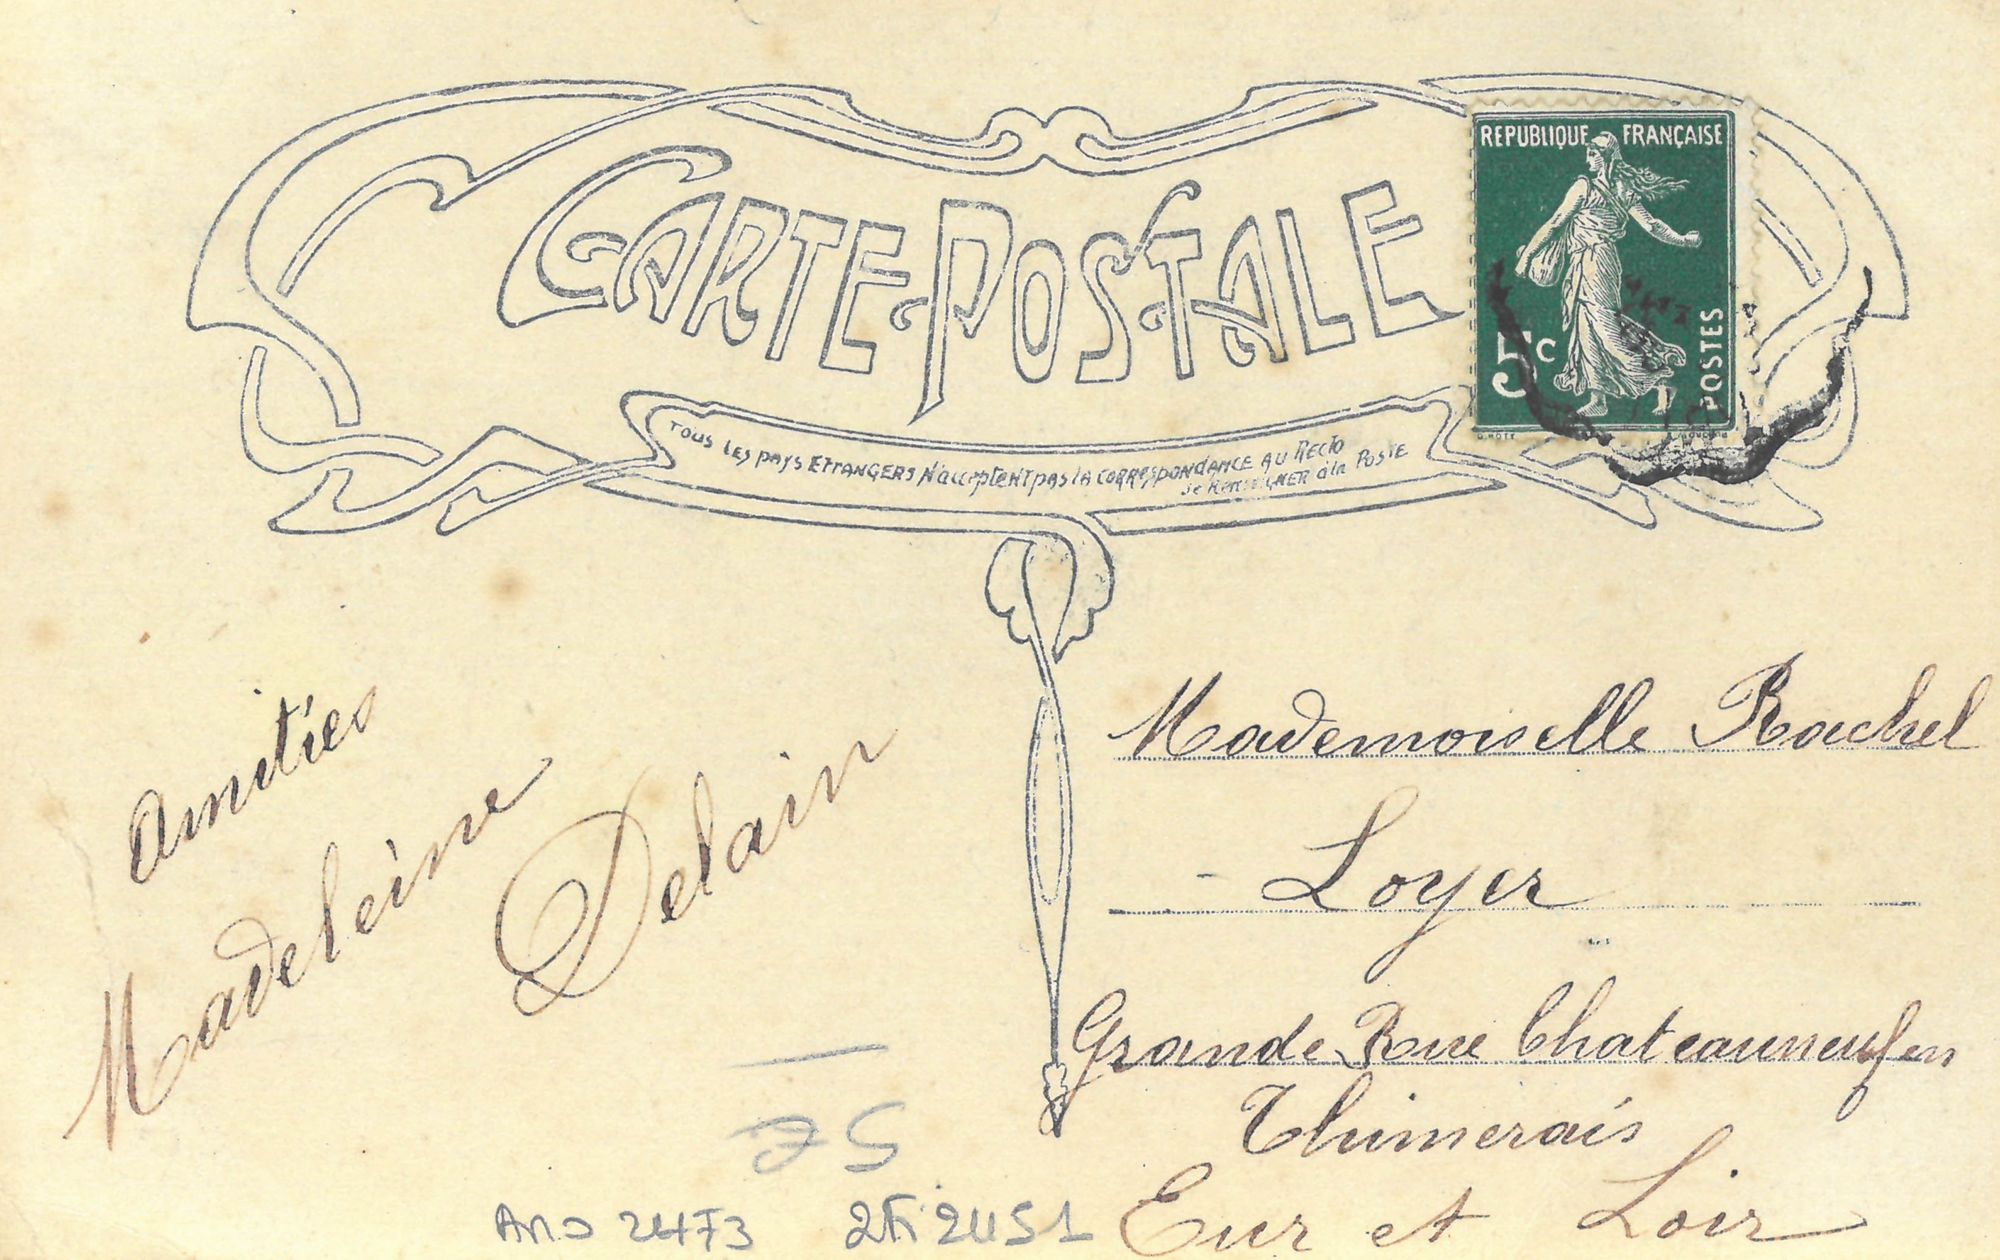 CARTE-POSTALE
TOUS LES PAYS ETRANGERS N'acceptent pas la CORRESPONDANCE AU RECTO
SE RENSEIGNER à la POSTE
REPUBLIQUE FRANÇAISE
5c
POSTES
Amitiés
Madeleine
Delain
Mademoiselle Rachel
- Loyer
Grande Rue Chateauneuf en
Thimerais
Eur et Loir
75
2473
2Fi 2451